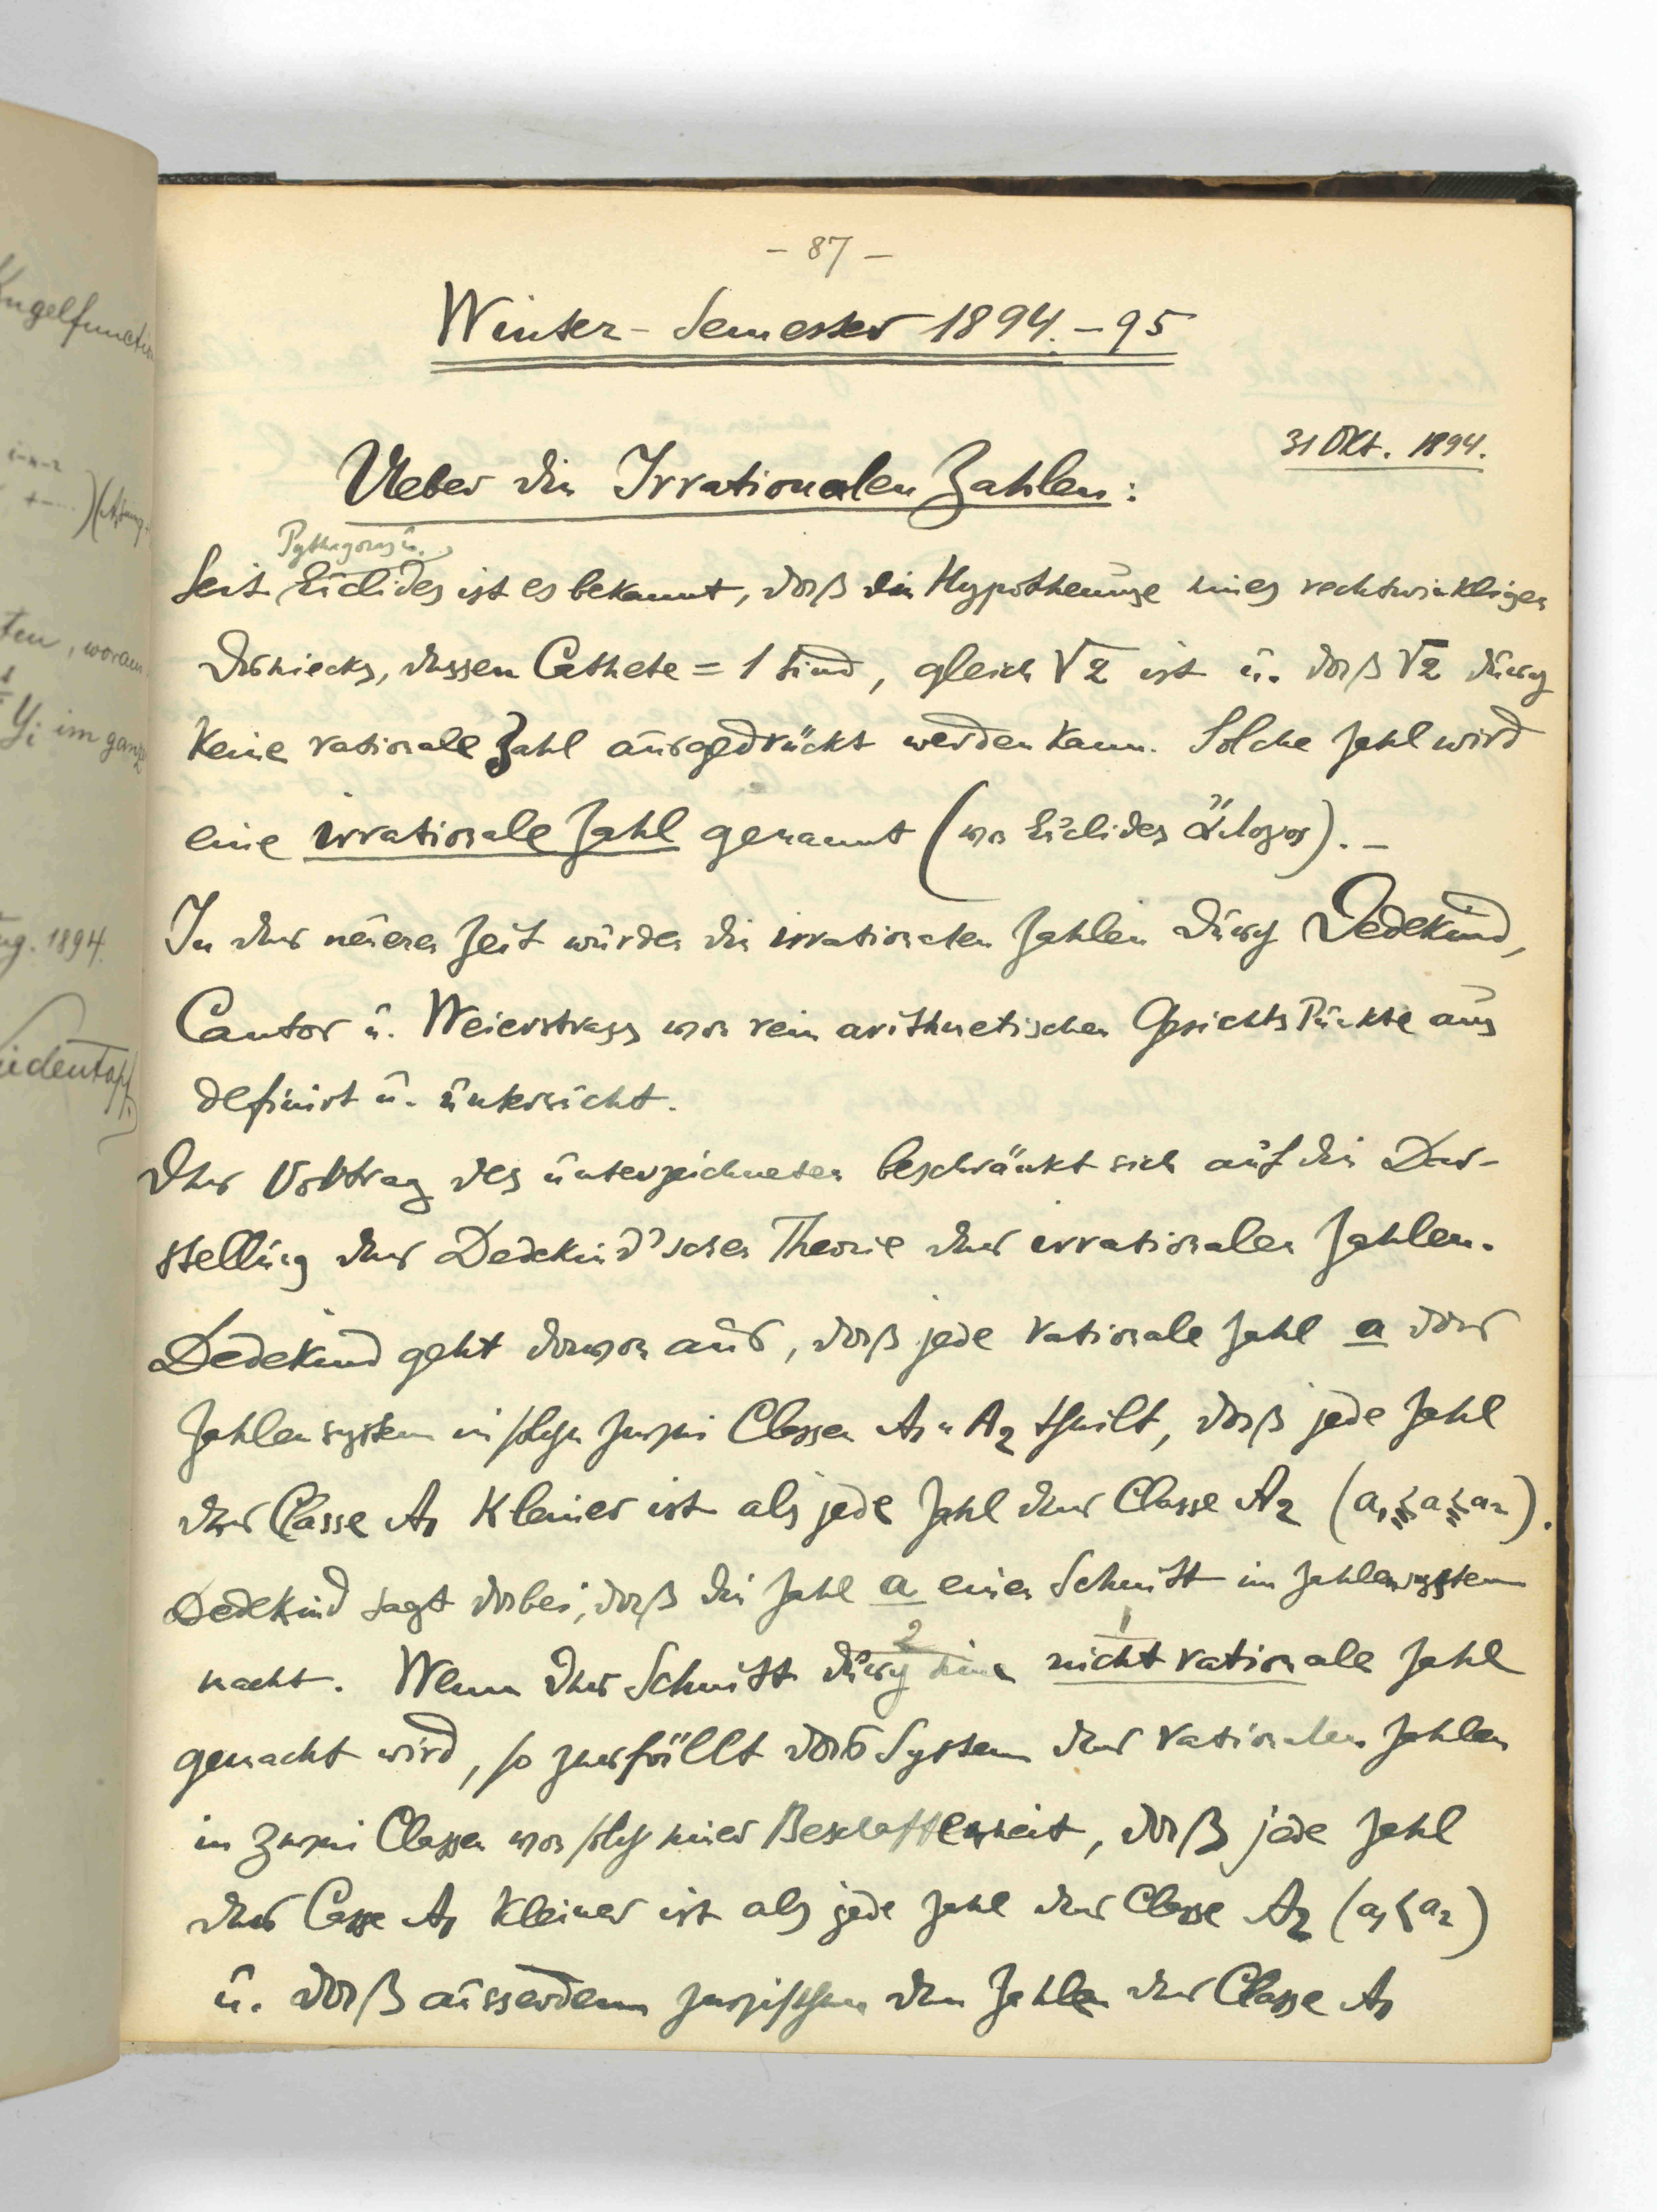 Kugelfunctio
ug. 1894.
ten, woraus
Y_i im ganz
– 87 –
Winter-Semester 1894.–95
31 Okt. 1894.
Ueber die Irrationalen Zahlen:
Pythagoras u.
Seit Euclides ist es bekannt, daß die Hypothenuse eines rechtwinkligen
Dreiecks, dessen Cathete = 1 sind, gleich √2 ist u. daß √2 durch
keine rationale Zahl ausgedrückt werden kann. Solche Zahl wird
eine irrationale Zahl genannt (von Euclides ἄλογος). –
In der neueren Zeit wurden die irrationalen Zahlen durch Dedekind,
Cantor u. Weierstrass von rein arithmetischen Gesichtspunkte aus
definirt u. untersucht.
Der Vortrag des unterzeichneten beschränkt sich auf die Dar-
stellung der Dedekind'schen Theorie der irrationalen Zahlen.
Dedekind geht davon aus, daß jede rationale Zahl a das
Zahlensystem in solche zwei Classen A₁ u A₂ theilt, daß jede Zahl
der Classe A₁ kleiner ist als jede Zahl der Classe A₂ (a₁ ≦ a ≦ a₂).
Dedekind sagt dabei, daß die Zahl a einen Schnitt im Zahlensystem
macht. Wenn der Schnitt durch eine nicht rationale Zahl
2 1
gemacht wird, so zerfällt das System der rationalen Zahlen
in zwei Classen von solch einer Beschaffenheit, daß jede Zahl
der Casse A₁ kleiner ist als jede Zahl der Classe A₂ (a₁ < a₂)
u. daß ausserdem zwischen den Zahlen der Classe A₁